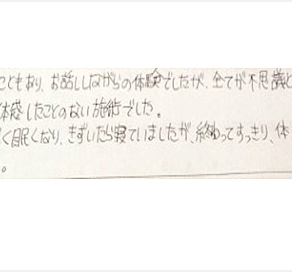 こともあり、お話ししながらの体験でしたが、全てが不思議と
体感したことのない施術でした。
く眠くなり、きずいたら寝ていましたが、終わってすっきり、体
。